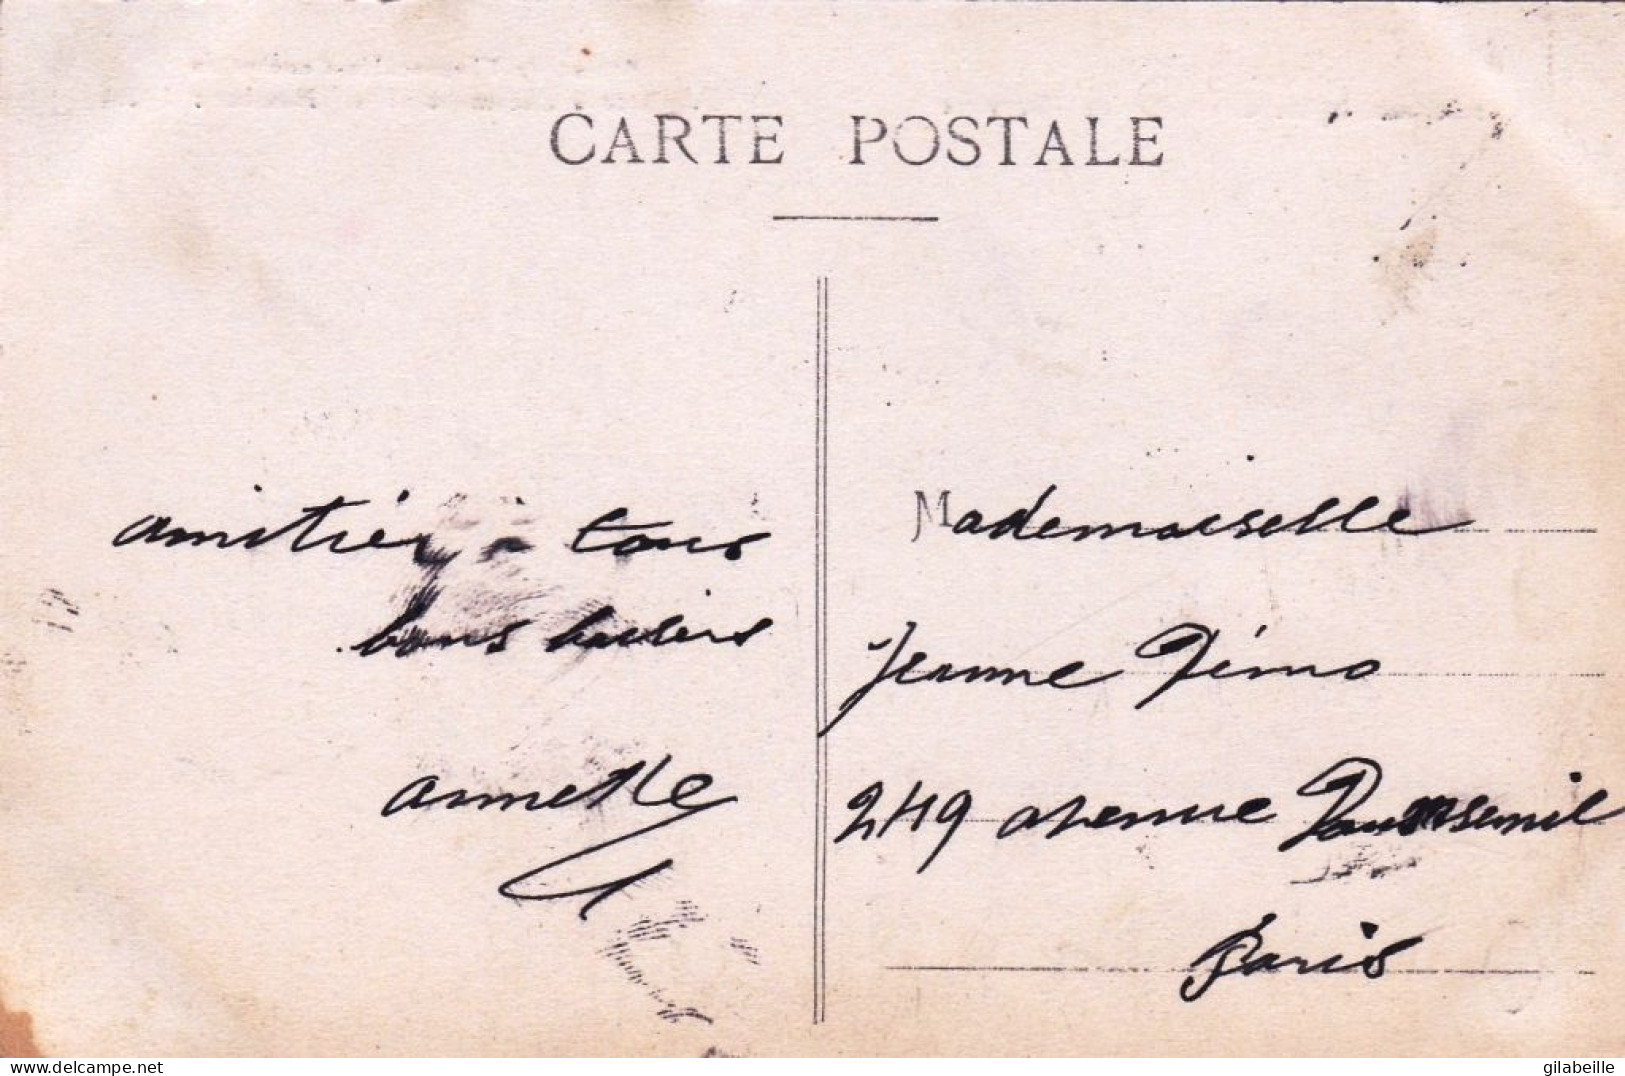 CARTE POSTALE
amitiés à tous
bons baisers
annette
Mademoiselle
Jeanne
249 avenue
Paris
www.delcampe.net
gilabeille